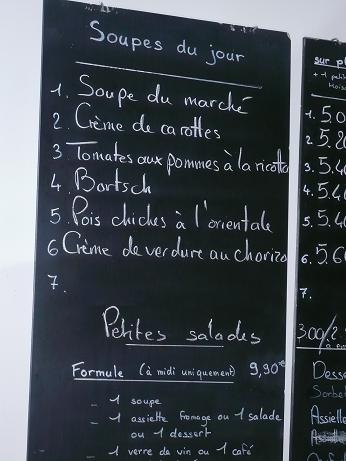 Soupes du jour
1. Soupe du marché
2. Crème de carottes
3 Tomates aux pommes à la ricotta
4. Bortsch
5. Pois chiches à l'orientale
6 Crème de verdure au chorizo
7.
Petites salades
Formule (à midi uniquement) 9,90€
- 1 soupe
- 1 assiette fromage ou 1 salade
ou 1 dessert
- 1 verre de vin ou 1 café
sur pl
+ 1 peti
1. 5.0
2. 5.20
3. 5.40
4. 5.40
5. 5.40
6. 5.60
7.
3.00/
Desse
Sorbe
Assielle
Assielle